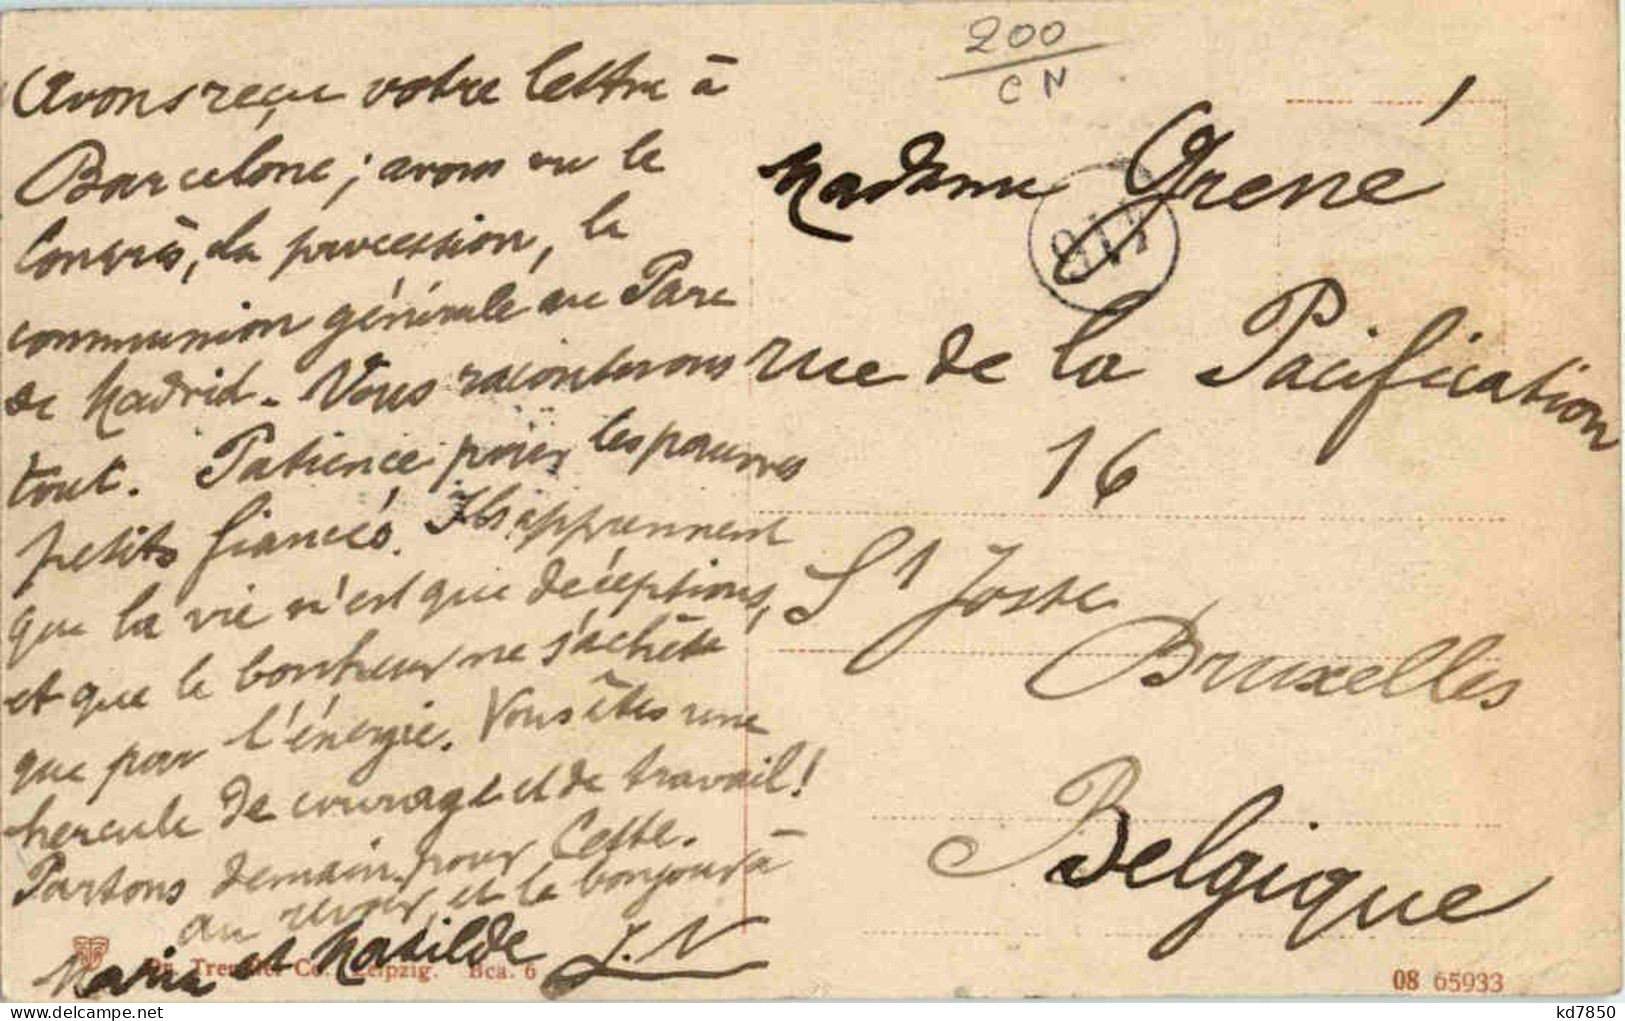 200
CN
Avons reçu votre lettre à
Barcelone; avons vu le
Congrès, la procession, la
communion générale au Parc
de Madrid. Vous raconterons
tout. Patience pour les pauvres
petits fiancés. Ils apprennent
que la vie n'est que déceptions,
et que le bonheur ne s'achète
que par l'énergie. Vous êtes une
hercule de courage et de travail!
Partons demain pour Cette.
au revoir et le bonjour à
Maria et Matilde J. N
Madame Grené
rue de la Pacification
16
St Josse
Bruxelles
Belgique
Dr. Trenkler Co. Leipzig. Bca. 6
08 65933
kd7850